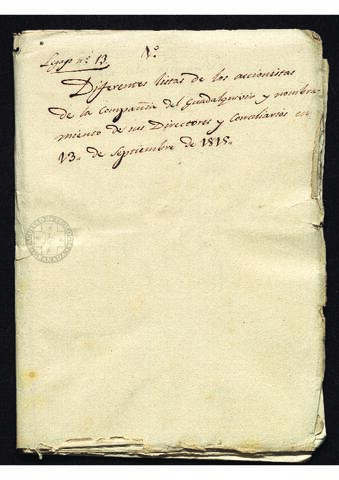 Legajo nº 13 Nº
Diferentes listas de los accionistas
de la Compañia del Guadalquivir y nombra-
miento de sus Directores y Conciliarios en
13 de Septiembre de 1815